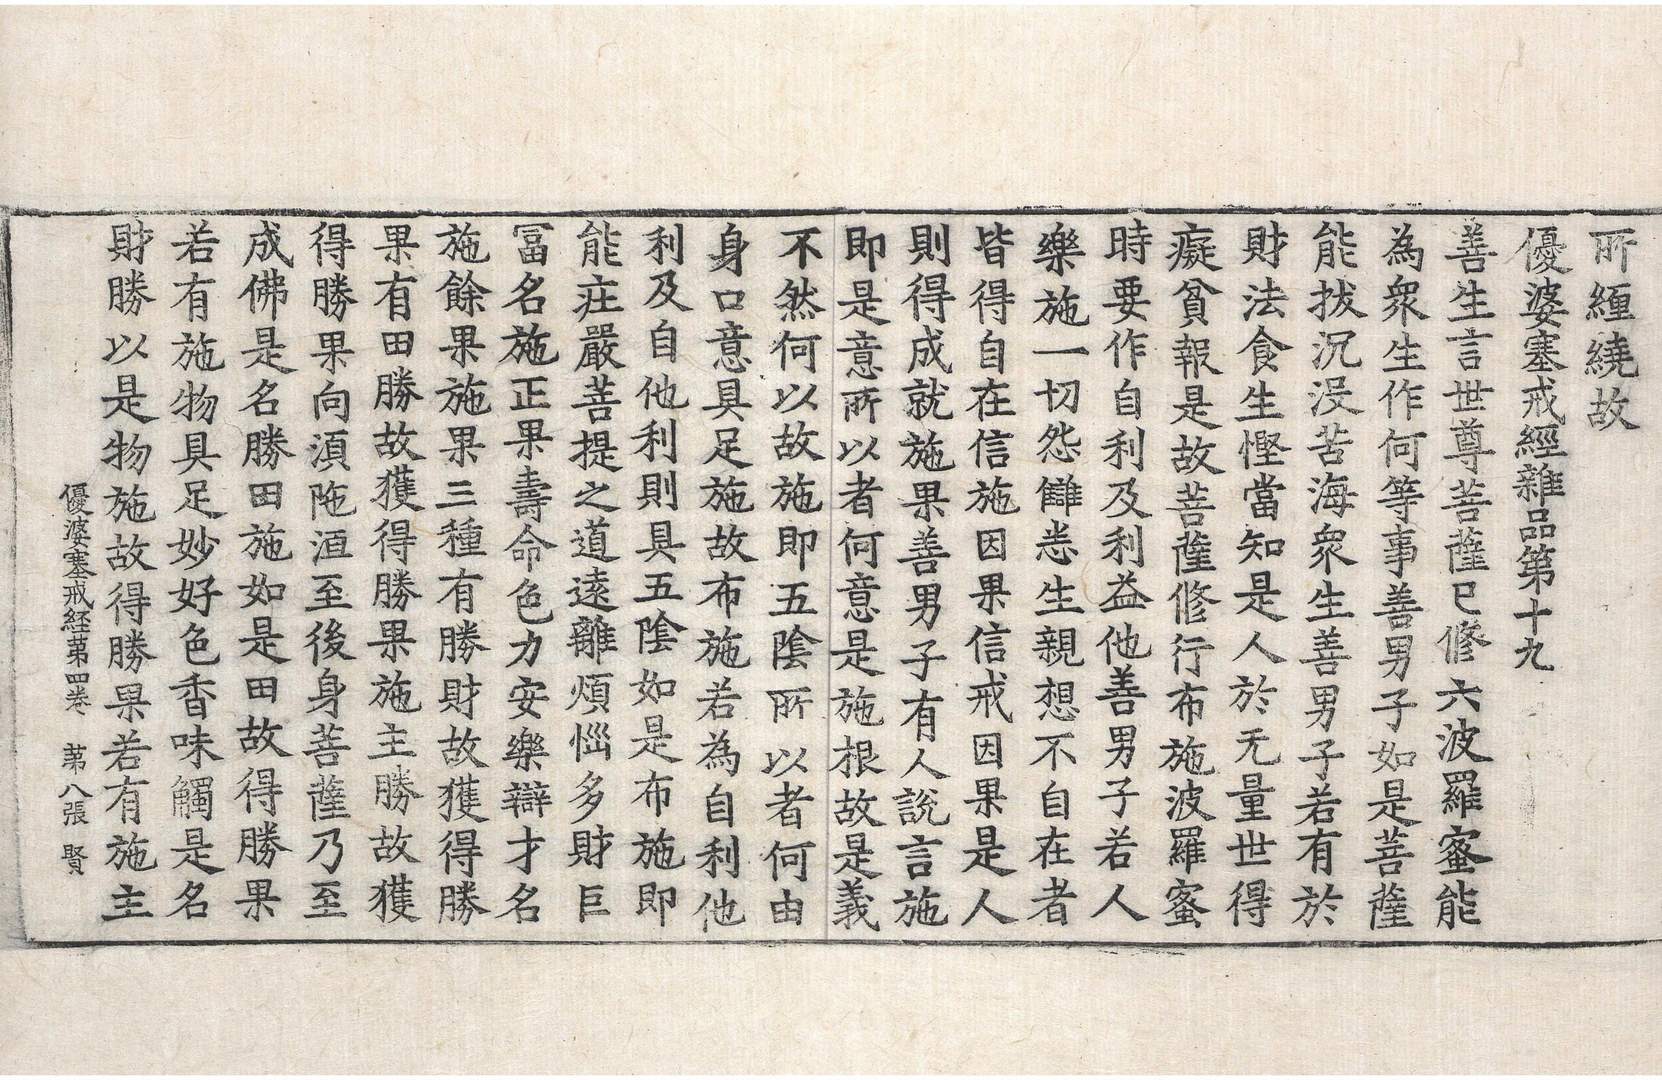 所纏繞故
優婆塞戒經雜品第十九
善生言世尊菩薩已修六波羅蜜能
為衆生作何等事善男子如是菩薩
能拔沉沒苦海衆生善男子若有於
財法食生慳當知是人於无量世得
癡貧報是故菩薩修行布施波羅蜜
時要作自利及利益他善男子若人
樂施一切怨讎恙生親想不自在者
皆得自在信施因果信戒因果是人
則得成就施果善男子有人說言施
即是意所以者何意是施根故是義
不然何以故施即五陰所以者何由
身口意具足施故布施若為自利他
利及自他利則具五陰如是布施即
能莊嚴菩提之道遠離煩惱多財巨
冨名施正果壽命色力安樂辯才名
施餘果施果三種有勝財故獲得勝
果有田勝故獲得勝果施主勝故獲
得勝果向湏陁洹至後身菩薩乃至
成佛是名勝田施如是田故得勝果
若有施物具足妙好色香味觸是名
財勝以是物施故得勝果若有施主
優婆塞戒経苐四卷 苐八張 賢